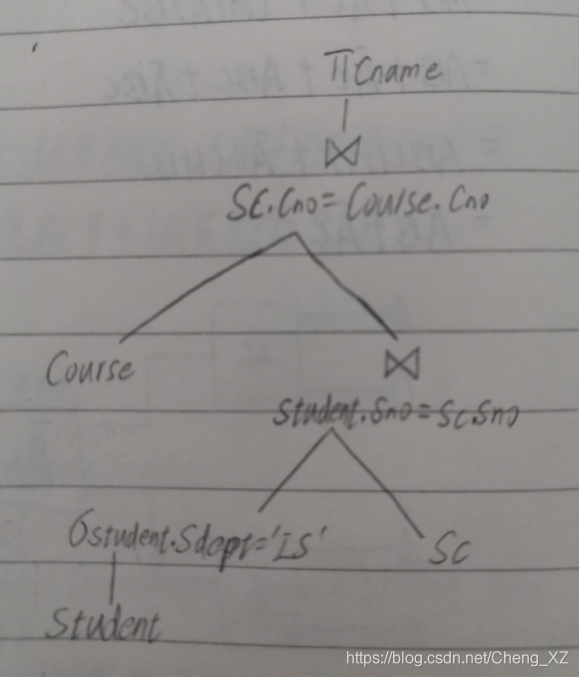 πCname
⋈
SC.Cno=Course.Cno
Course
⋈
Student.Sno=Sc.Sno
σstudent.Sdept='IS'
Sc
Student
https://blog.csdn.net/Cheng_XZ